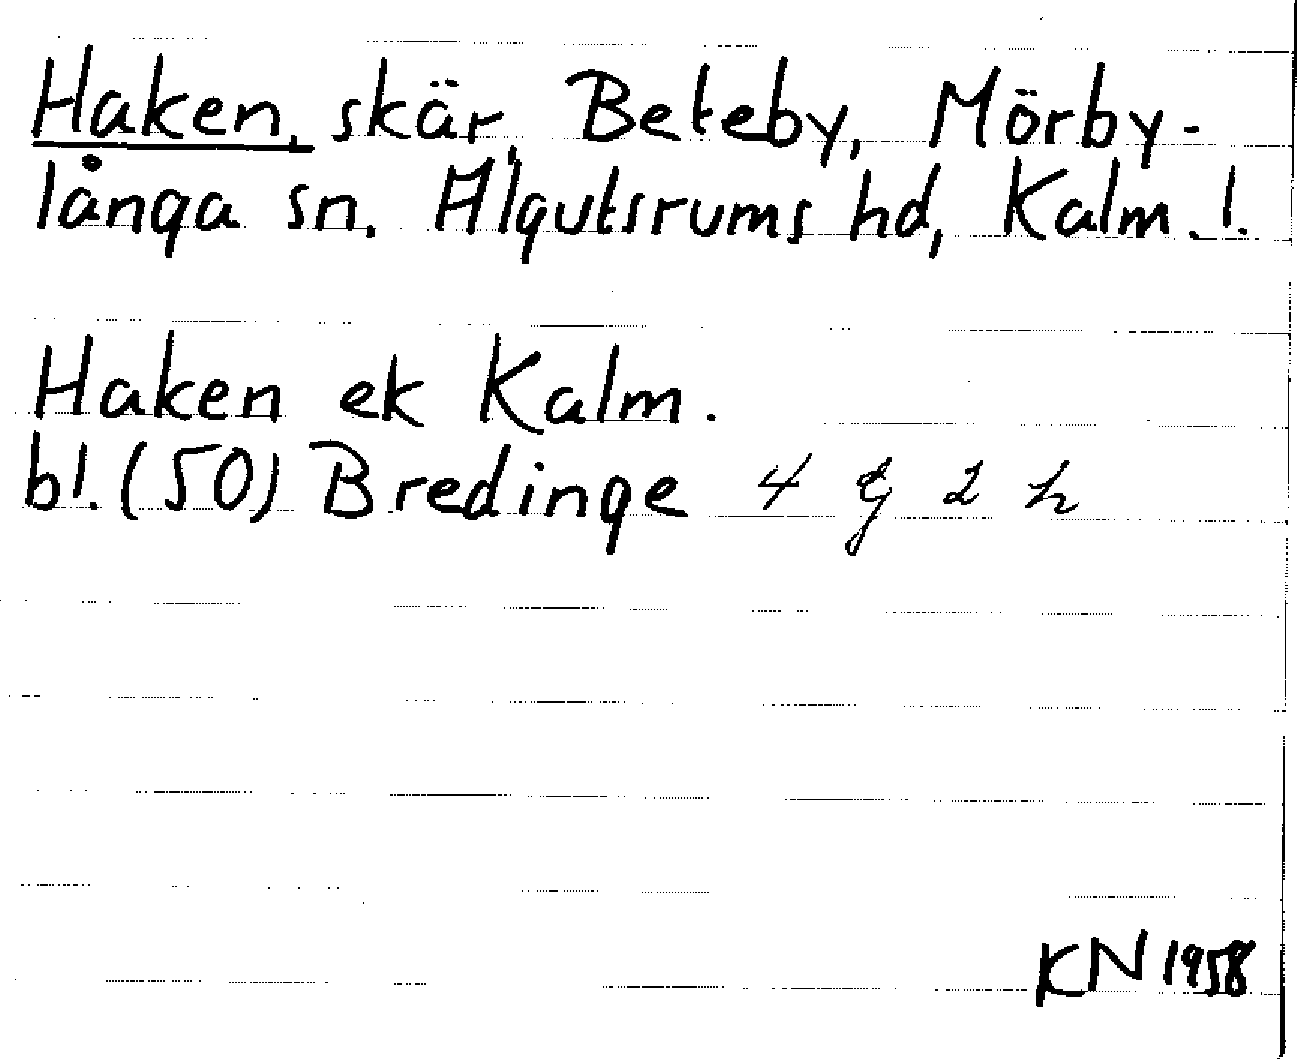 Haken, skär, Beteby, Mörby-
långa sn. Algutsrums hd, Kalm. l.
Haken ek Kalm.
bl. (50) Bredinge 4 g 2 h
KN 1958